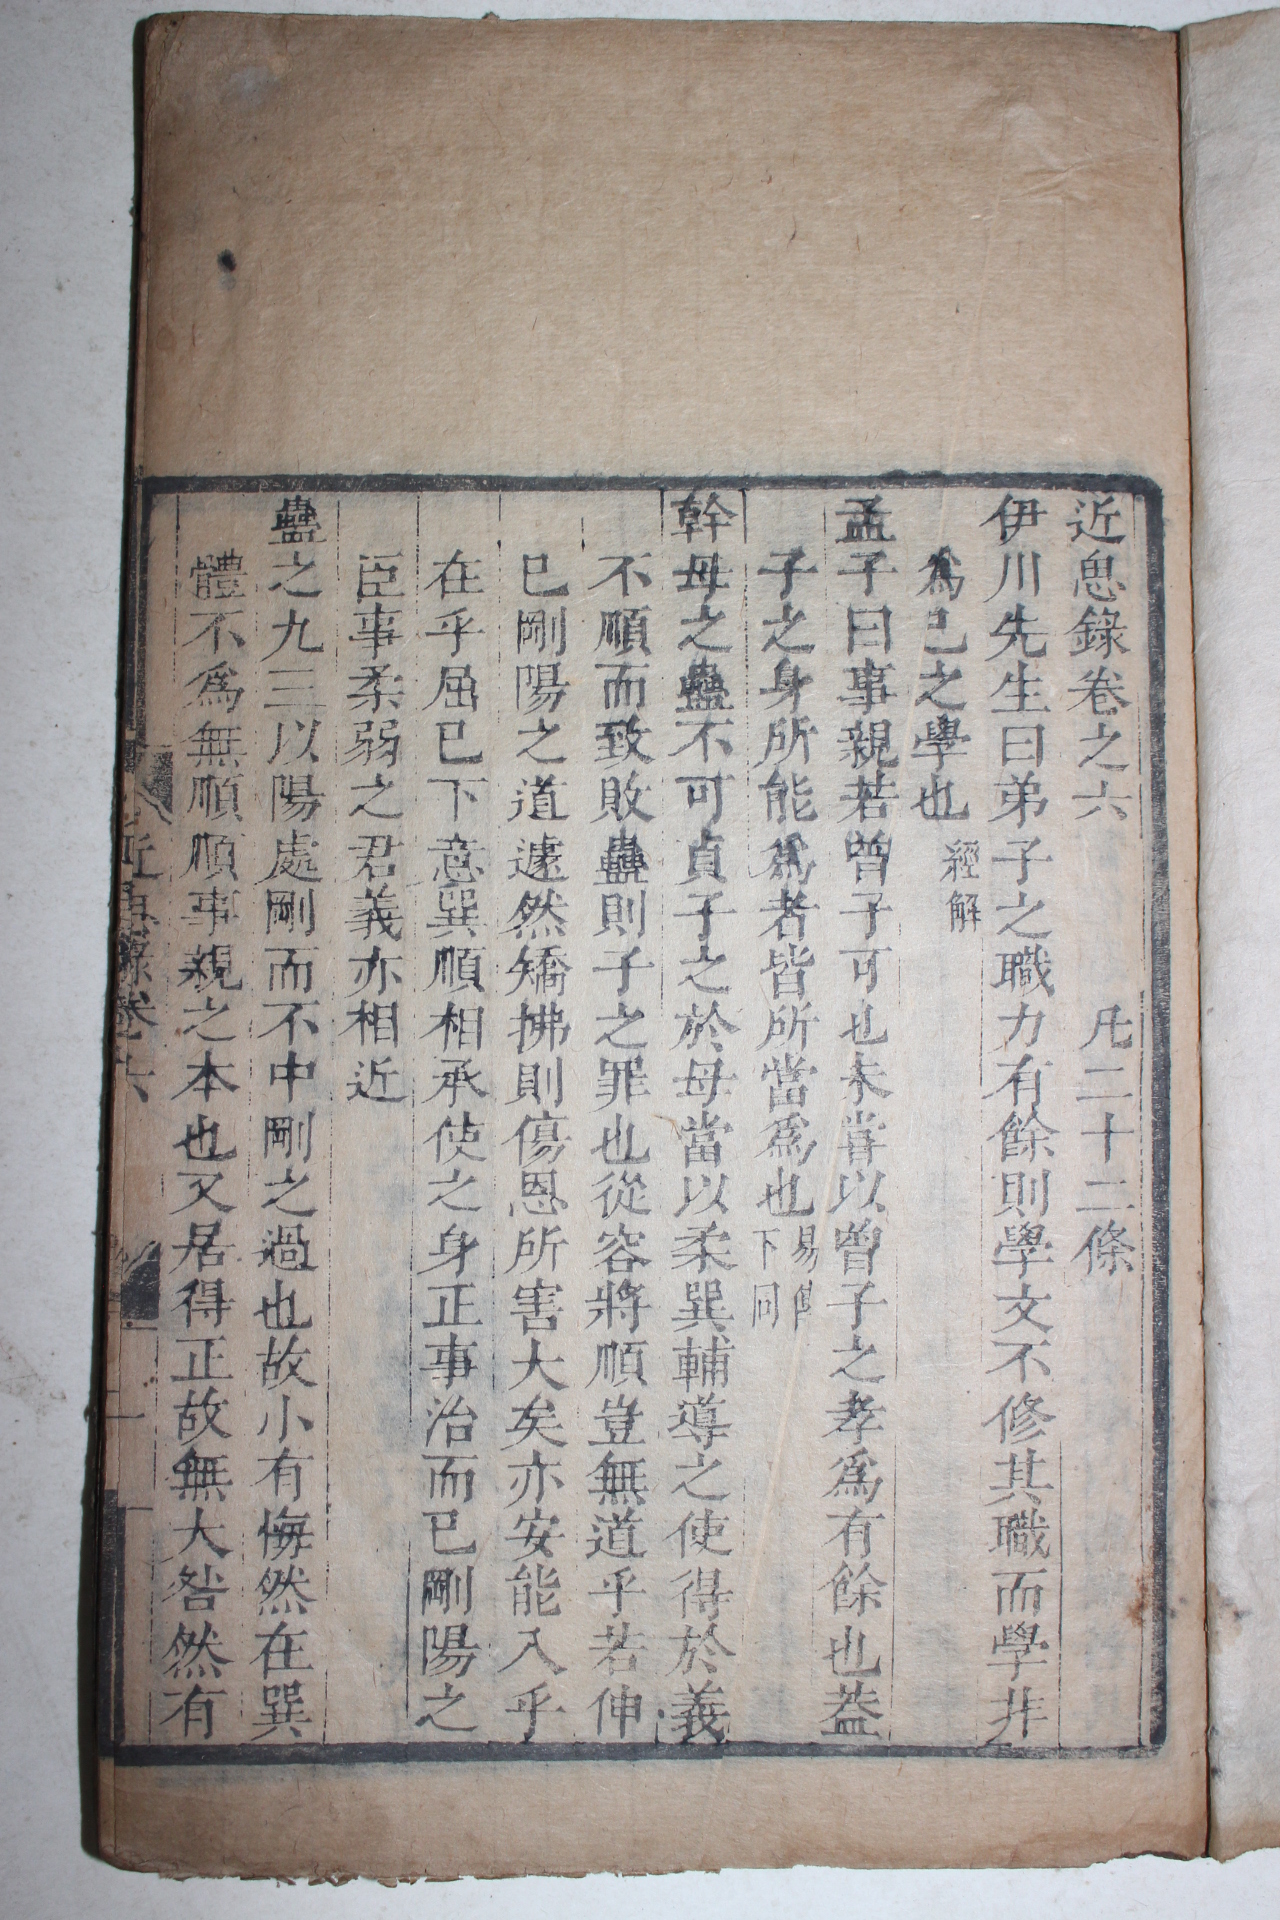 近思錄卷之六　凡二十二條
伊川先生曰弟子之職力有餘則學文不修其職而學非
爲己之學也 經解
孟子曰事親若曾子可也未嘗以曾子之孝爲有餘也葢
子之身所能爲者皆所當爲也 易傳下同
幹母之蠱不可貞子之於母當以柔巽輔導之使得於義
不順而致敗蠱則子之罪也從容將順豈無道乎若伸
已剛陽之道遽然矯拂則傷恩所害大矣亦安能入乎
在乎屈已下意巽順相承使之身正事治而已剛陽之
臣事柔弱之君義亦相近
蠱之九三以陽處剛而不中剛之過也故小有悔然在巽
體不爲無順順事親之本也又居得正故無大咎然有
近思錄卷六
一